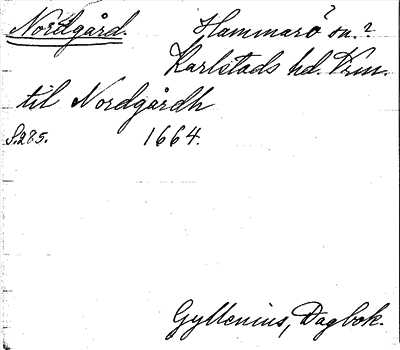 Nordgård. Hammarö sn.?
Karlstads hd. Vrm.
til Nordgårdh
S.285. 1664.
Gyllenius, Dagbok.